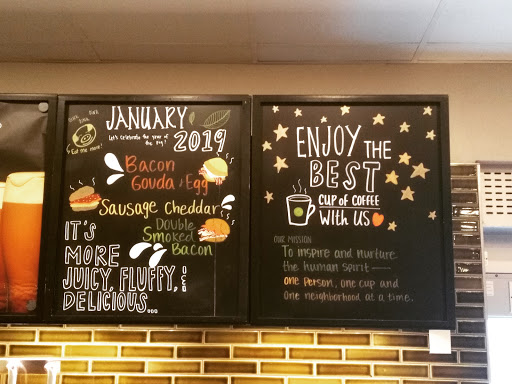 JANUARY
Let's celebrate the year of
the pig!
2019
Eat me more!
Bacon
Gouda & Egg
Sausage Cheddar
Double
Smoked
Bacon
IT'S
MORE
JUICY, FLUFFY,
DELICIOUS...
ENJOY THE
BEST
CUP OF COFFEE
WITH US
OUR MISSION
To inspire and nurture
the human spirit—
one person, one cup and
one neighborhood at a time.